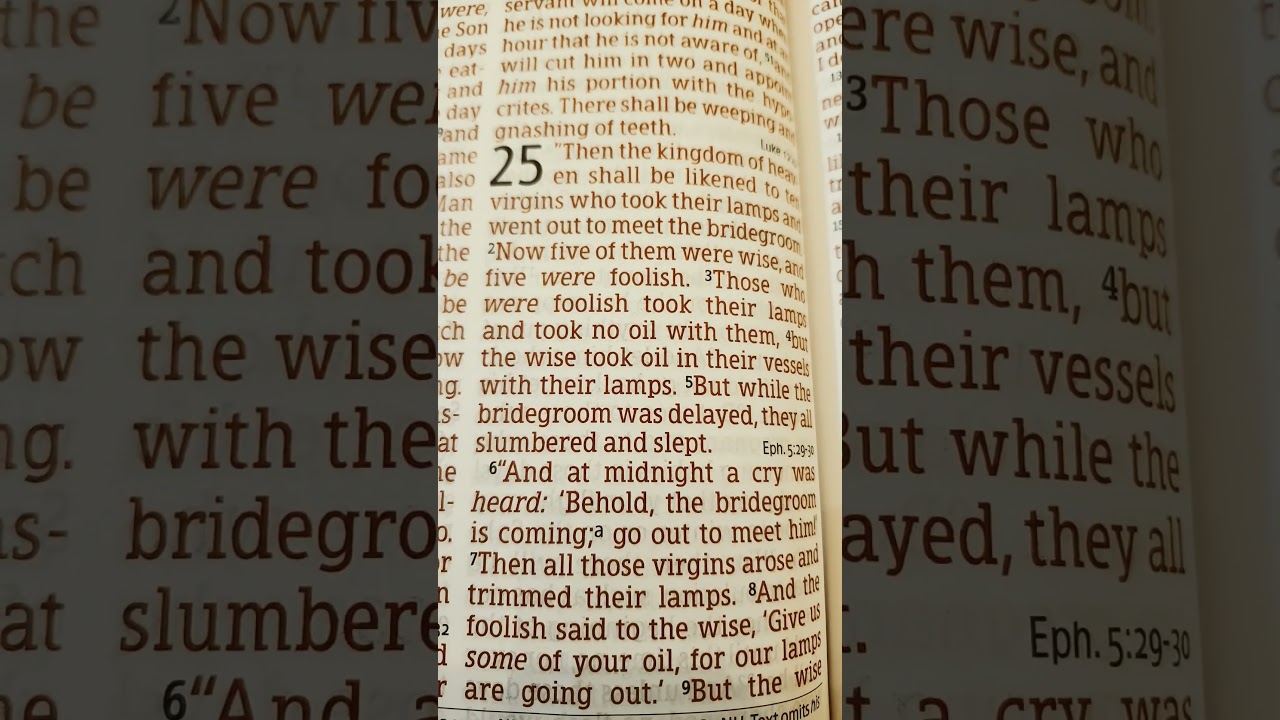 servant will come on a day when
he is not looking for him and at an
hour that he is not aware of, 51and
will cut him in two and appoint
him his portion with the hypo-
crites. There shall be weeping and
gnashing of teeth.
Luke
25 "Then the kingdom of heav-
en shall be likened to ten
virgins who took their lamps and
went out to meet the bridegroom
2Now five of them were wise, and
five were foolish. 3Those who
were foolish took their lamps
and took no oil with them, 4but
the wise took oil in their vessels
with their lamps. 5But while the
bridegroom was delayed, they all
slumbered and slept. Eph. 5:29-30
6“And at midnight a cry was
heard: ‘Behold, the bridegroom
is coming;a go out to meet him!’
7Then all those virgins arose and
trimmed their lamps. 8And the
foolish said to the wise, ‘Give us
some of your oil, for our lamps
are going out.’ 9But the wise
NU-Text omits his